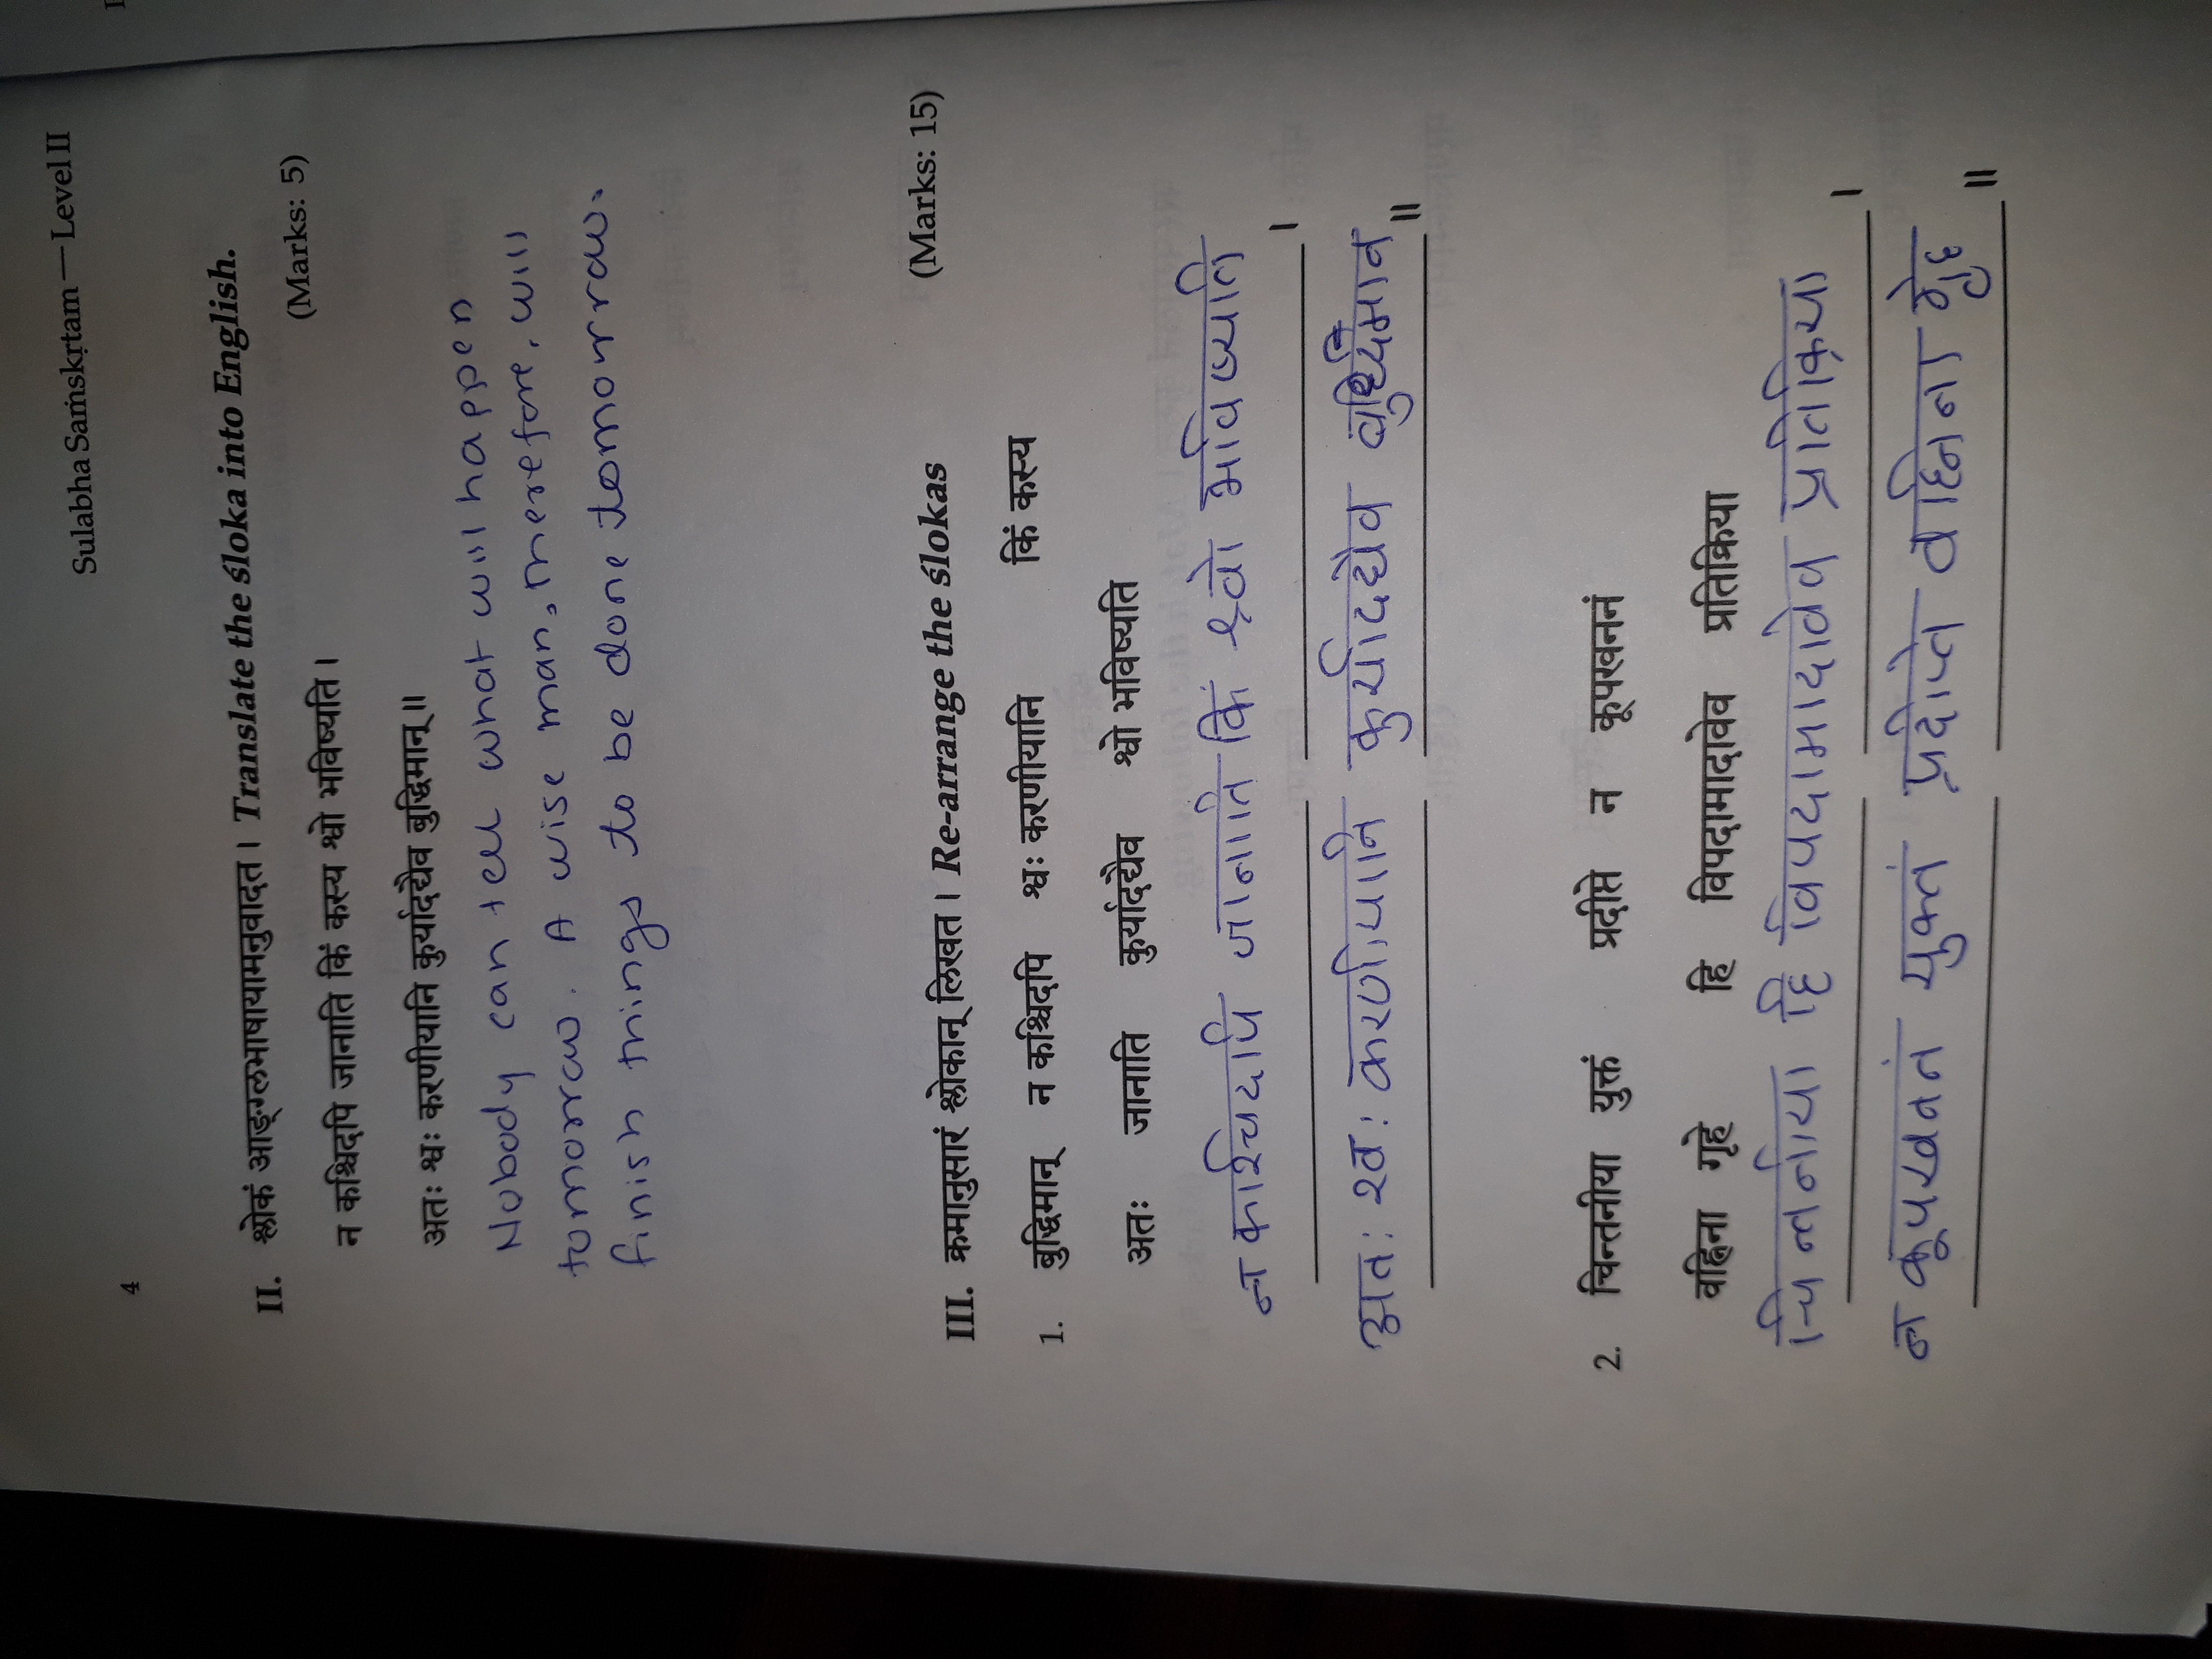 Sulabha Saṁskṛtam — Level II
4
II. श्लोकं आङ्ग्लभाषायामनुवादत । Translate the śloka into English.
(Marks: 5)
न कश्चिदपि जानाति किं कस्य श्वो भविष्यति ।
अतः श्वः करणीयानि कुर्यादद्यैव बुद्धिमान् ॥
Nobody can tell what will happen
tomorrow. A wise man, therefore, will
finish things to be done tomorrow.
III. क्रमानुसारं श्लोकान् लिखत । Re-arrange the ślokas (Marks: 15)
1. बुद्धिमान् न कश्चिदपि श्वः करणीयानि किं कस्य
अतः जानाति कुर्यादद्यैव श्वो भविष्यति
न कश्चिदपि जानाति किं श्वो भविष्यति ।
अतः श्वः करणीयानि कुर्यादद्यैव बुद्धिमान ॥
2. चिन्तनीया युक्तं प्रदीप्ते न कूपखननं
वह्निना गृहे हि विपदामादावेव प्रतिक्रिया
चिन्तनीया हि विपदामादावेव प्रतिक्रिया ।
न कूपखननं युक्तं प्रदीप्ते वह्निना गृहे ॥